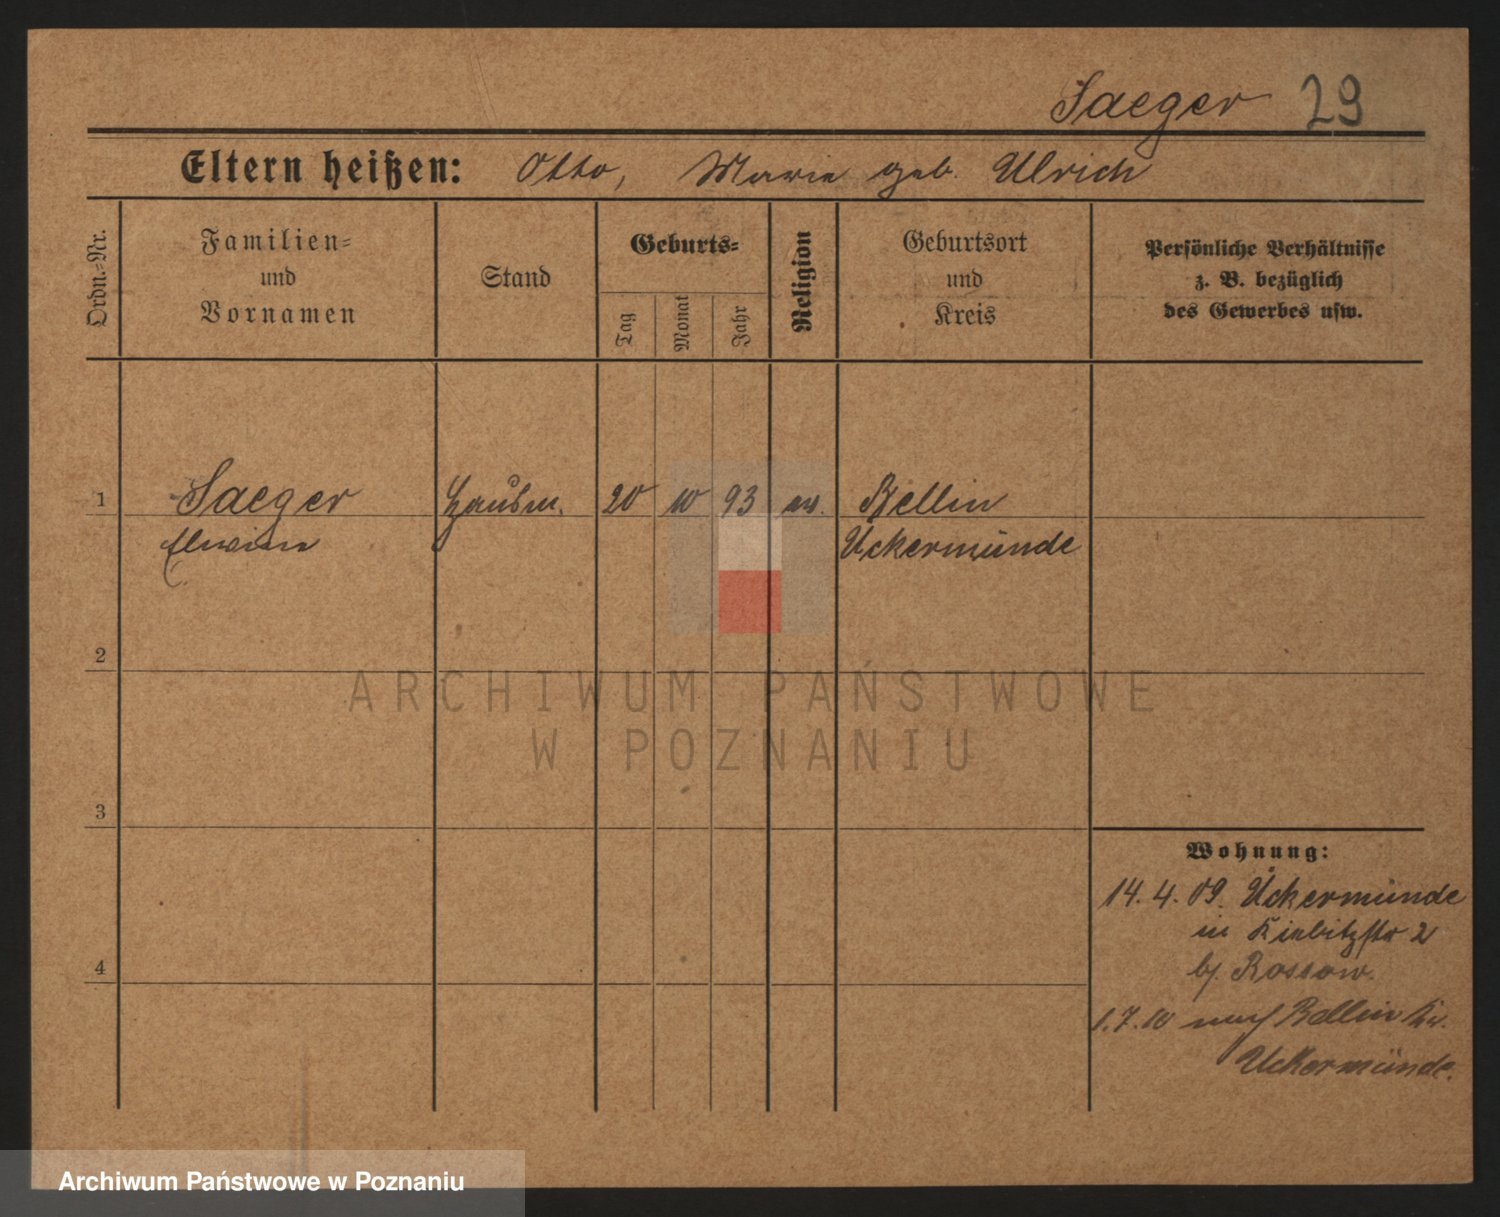 Saeger 29
Eltern heißen: Otto, Marie geb. Ulrich
Ordn.-Nr.
Familien-
und
Vornamen
Stand
Geburts-
Tag
Monat
Jahr
Religion
Geburtsort
und
Kreis
Persönliche Verhältnisse
z. B. bezüglich
des Gewerbes usw.
1 Saeger Hausm. 20 10 93 ev. Bellin
Elwine Uckermünde
2
3
4
Wohnung:
14. 4. 09. Uckermünde
in Kiebitzstr 2
bj. Rossow.
1.7.10 nach Bellin Kr.
Uckermünde.
ARCHIWUM PAŃSTWOWE
W POZNANIU
Archiwum Państwowe w Poznaniu